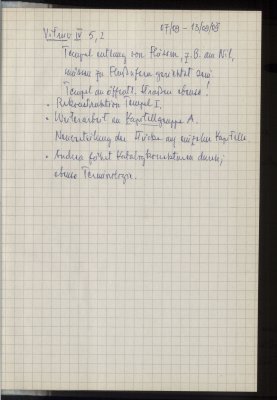 07/09 – 13/09/09
Vitruv IV 5,2
Tempel entlang von Flüssen, z.B. am Nil,
müssen zu Flußufern gerichtet sein!
Tempel an öffentl. Straßen ebenso!
• Rekonstruktion Tempel I.
• Weiterarbeit an Kapitellgruppe A.
der Stücke auf einzelne Kapitelle
• Andrea führt Katalogkorrekturen durch;
ebenso Terminologie.